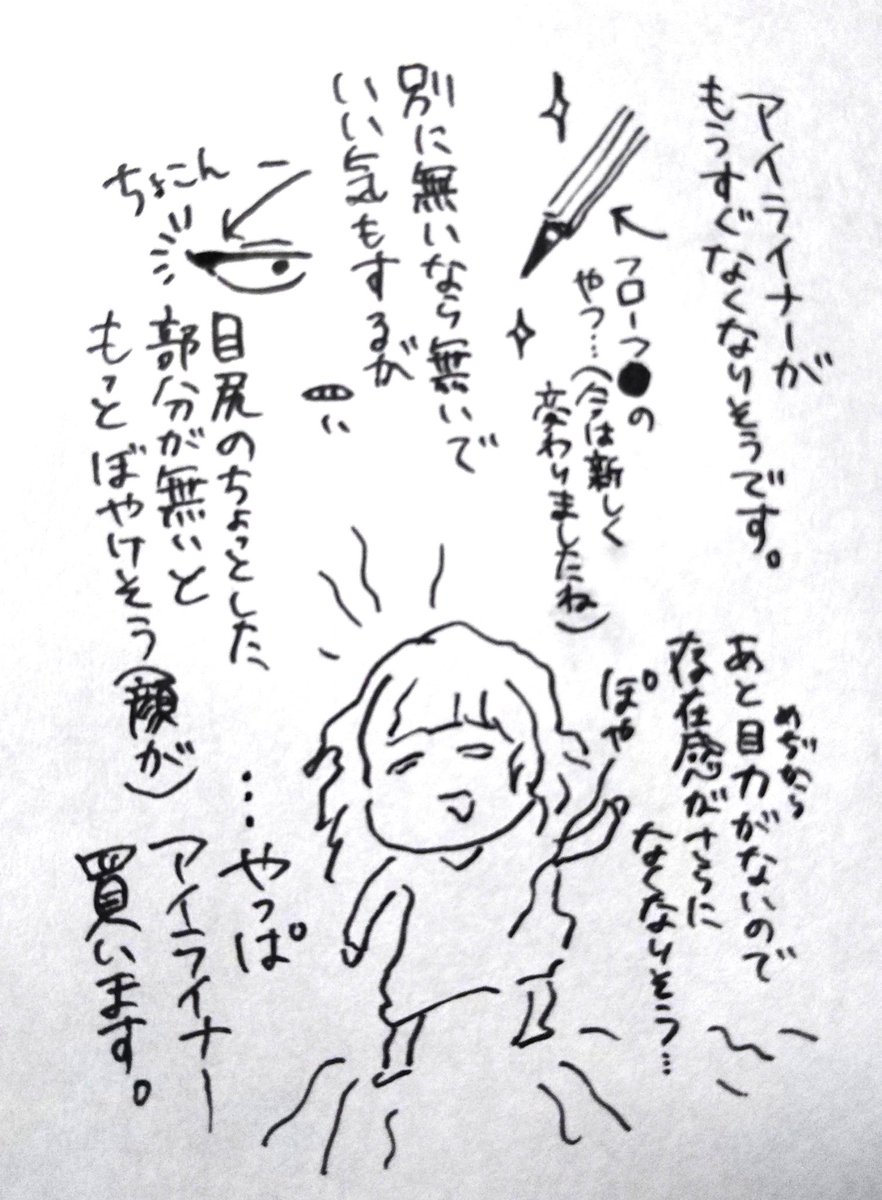 アイライナーが
もうすぐなくなりそうです。
フローフ●の
やつ…(今は新しく
変わりましたね)
別に無いなら無いで
いい気もするが
ちょこん
目尻のちょっとした
部分が無いと
もっとぼやけそう(顔が)
めぢから
あと目力がないので
存在感がさらに
なくなりそう…
ぽや
…やっぱ
アイライナー
買います。